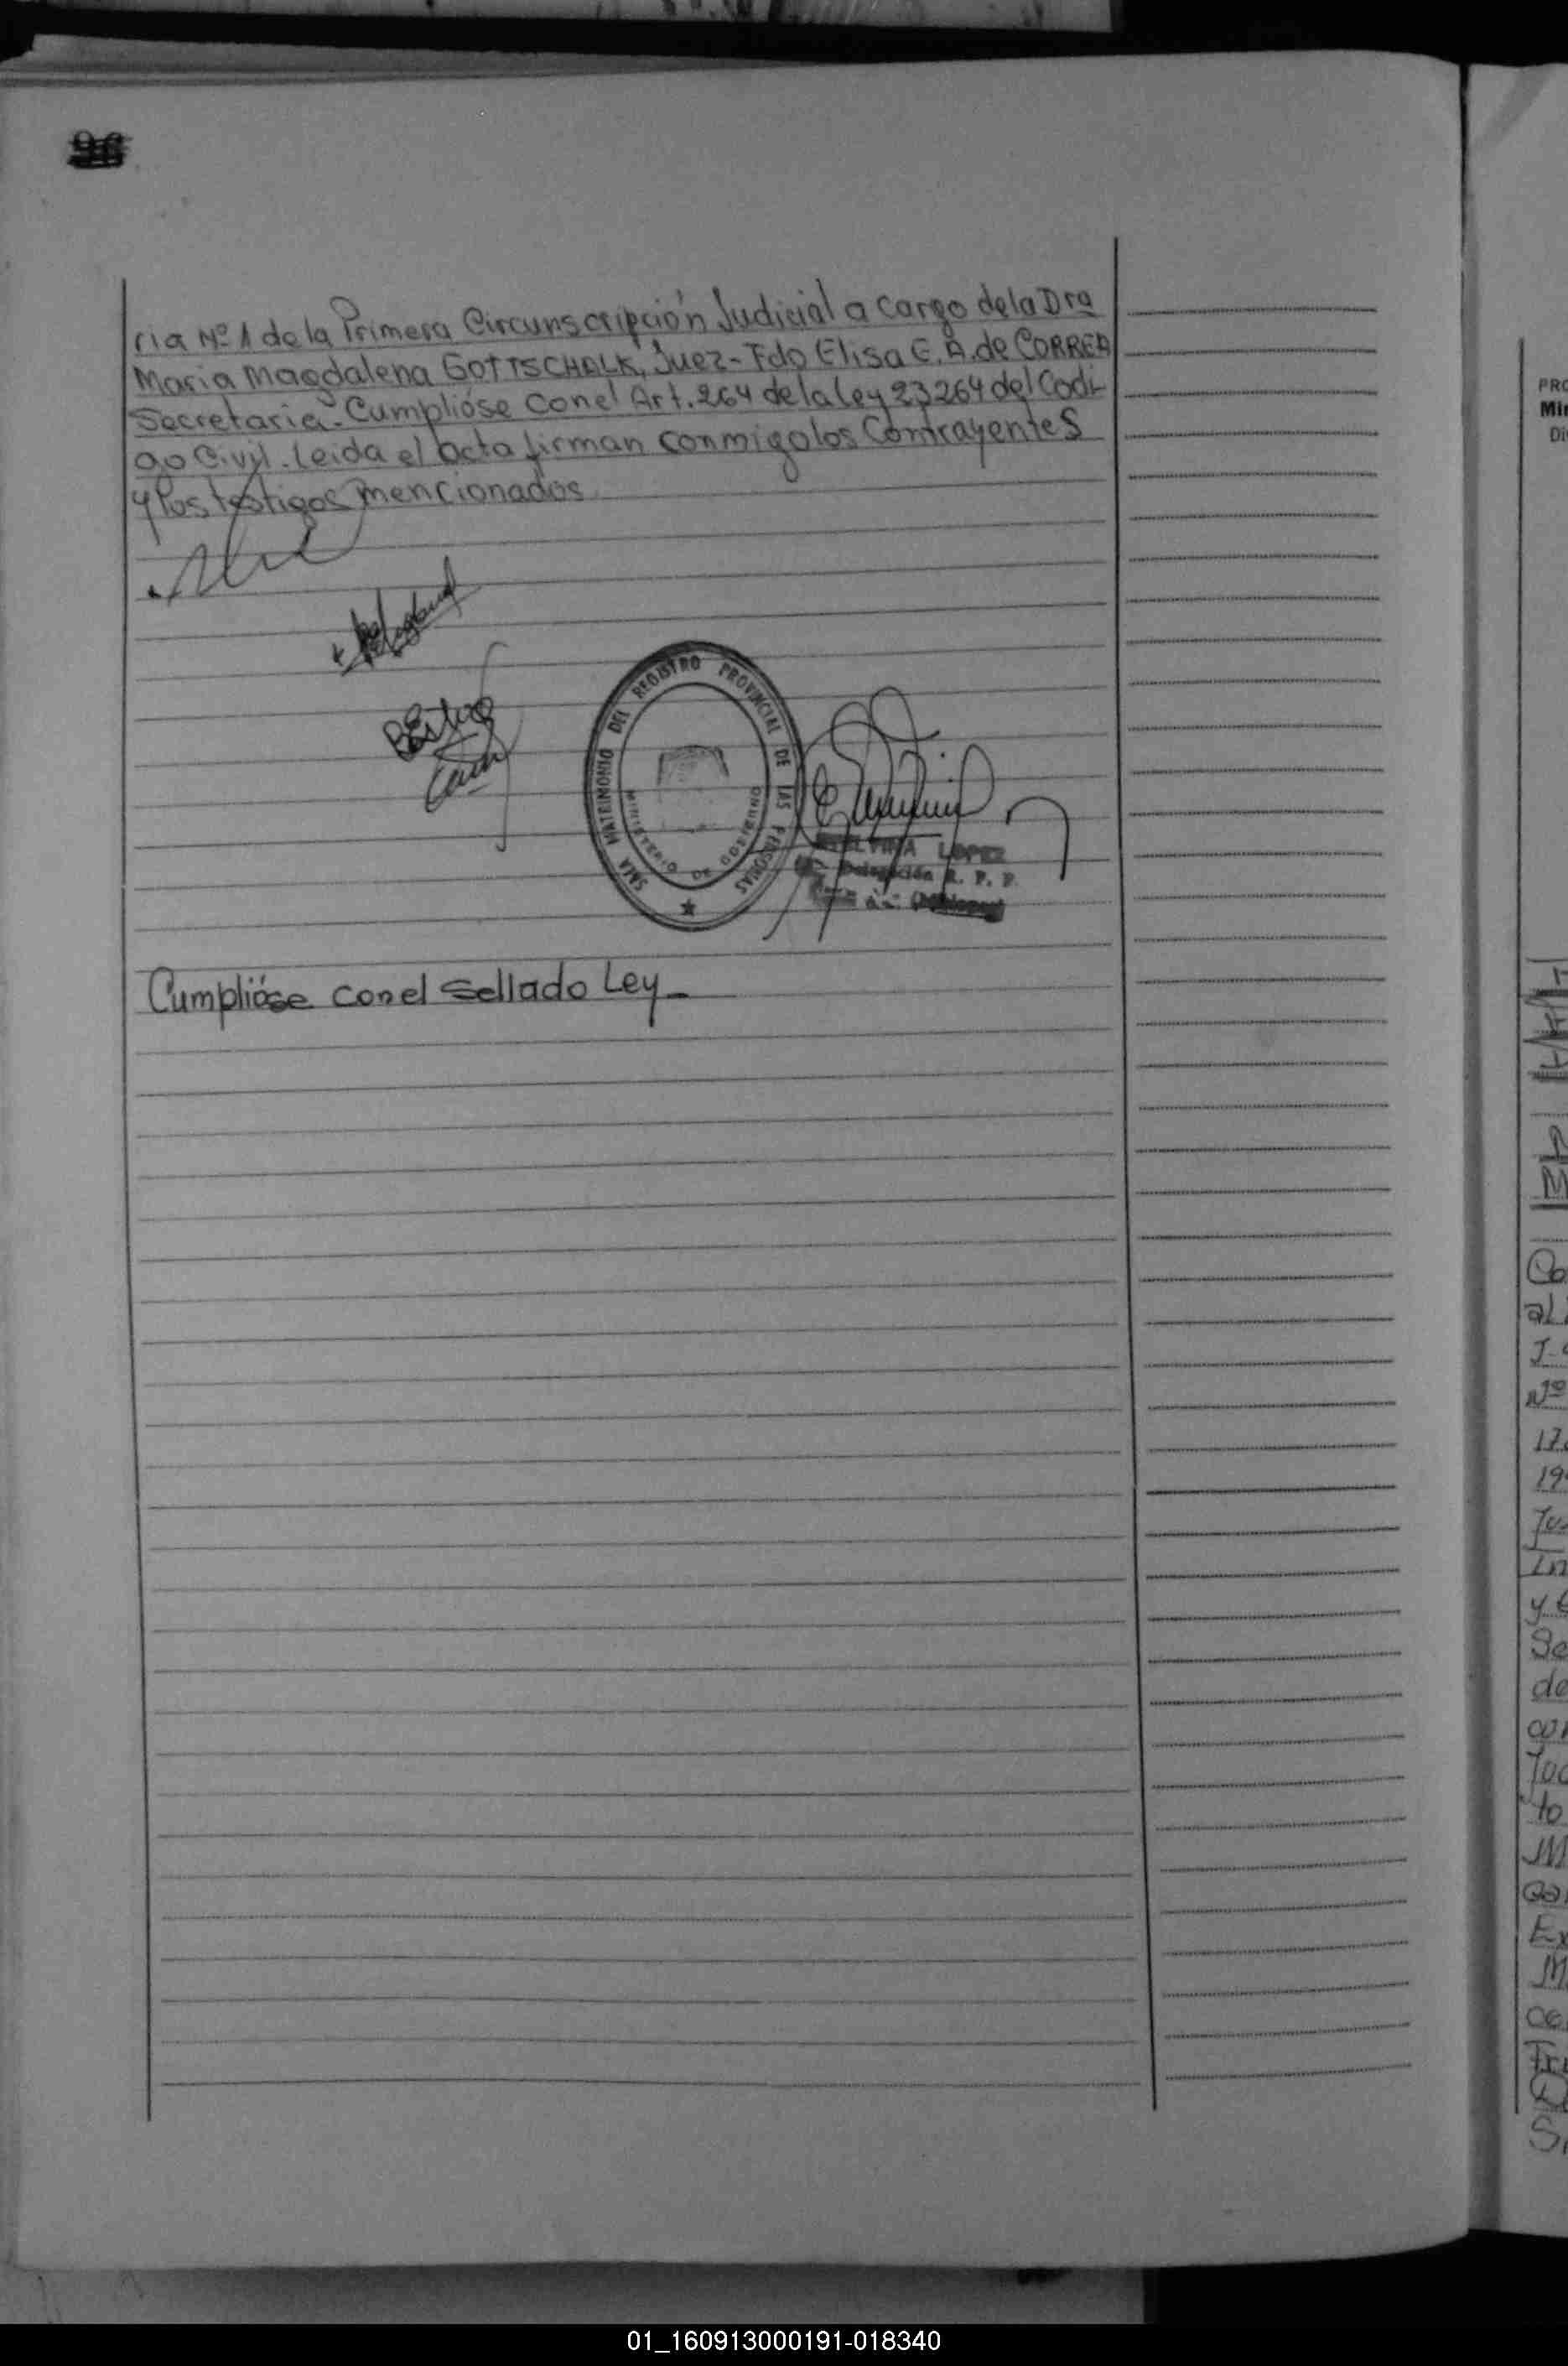 96
ria Nº 1 de la Primera Circunscripción Judicial a cargo de la Dra
Maria Magdalena GOTTSCHALK, Juez - Fdo Elisa E. A. de CORREA
Secretaria - Cumplióse con el Art. 264 de la ley 23264 del Codi-
go Civil. Leida el acta firman conmigo los Contrayentes
y los testigos mencionados
REGISTRO PROVINCIAL DE LAS PERSONAS
MATRIMONIO DEL
MINISTERIO DE GOBIERNO
LOPEZ
Delegación R. P. P.
Cumplióse con el Sellado Ley -
PRO
Min
Di
Co
al
J-
Nº
17
19
Se
de
to
Ex
01_160913000191-018340